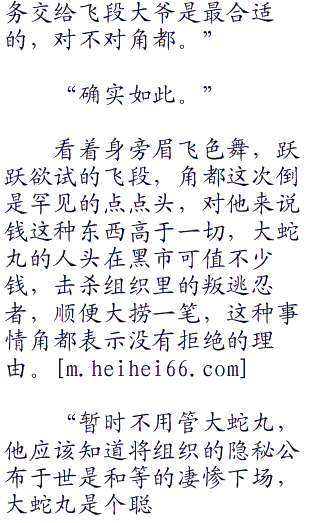 务交给飞段大爷是最合适
的，对不对角都。”
“确实如此。”
看着身旁眉飞色舞，跃
跃欲试的飞段，角都这次倒
是罕见的点点头，对他来说
钱这种东西高于一切，大蛇
丸的人头在黑市可值不少
钱，击杀组织里的叛逃忍
者，顺便大捞一笔，这种事
情角都表示没有拒绝的理
由。[m.heihei66.com]
“暂时不用管大蛇丸，
他应该知道将组织的隐秘公
布于世是和等的凄惨下场，
大蛇丸是个聪